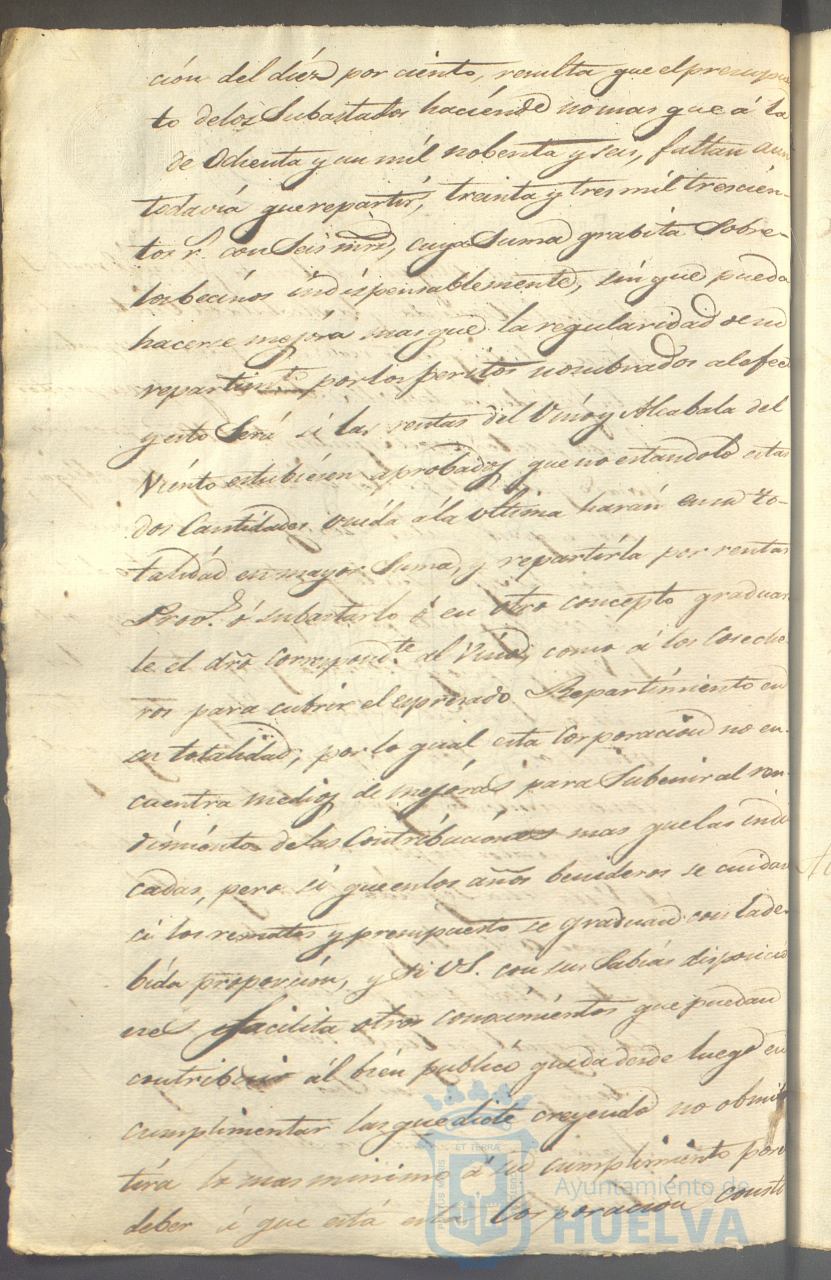 ción del diéz por ciento, resulta que el presupues
to de los Subastados haciénde no mas que á la
de Ochenta y un mil nobenta y seis, faltan aun
todaviá que repartir, treinta y tres mil trescién-
tos r.ˢ con Seis mrs, cuya Suma grabita Sobre-
los becinos indispensablemente, sin que pueda
hacerse mejóra mas que la regularidad de su
repartim.to por los peritos nombrados al efec
y esto Será si las rentas del Vino y Alcabala del
Viénto estubiesen aprobadas, que no estandolo estas
dos Cantidades unida á la ultima harán en su to-
talidad en mayor Suma, y repartirla por rentas
Prov.ˢ ó subastarlo ó en otro concepto graduar
le el dro correspond.te al Vino, como á los Coseche
ros para cubrir el espresado Repartimiento en
su totalidad, por lo qual esta Corporacion no en-
cuentra medios de mejóras para Subenir al ren-
dimiénto de las Contribuciónes mas que las indi
cadas, pero si que en los años benideros se cuidará
si los remates y presupuesto se graduan con la de-
bida proporción, y si VS. con sus Sabias disposicio
nes facilita otros conocimiéntos que puedan
contribuir ál bién publicó queda desde luego en
cumplimentar las que dicte creyendo no obmi
tira lo mas minimo á su cumplimiénto por el
deber á que está esta Corporacion consti
Ayuntamiento de
HUELVA